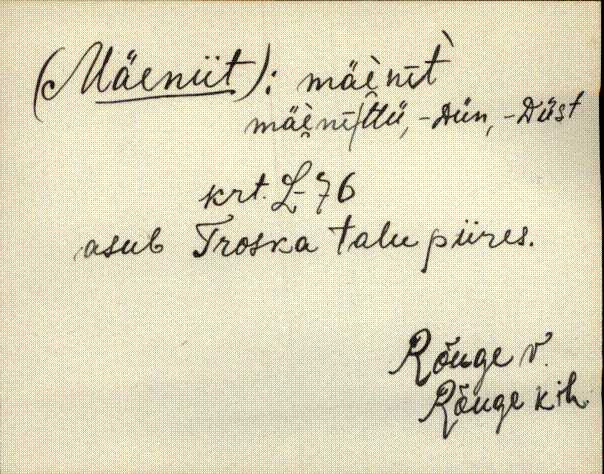 (Mäeniit): mäe̬nīt̀
mäe̬nī/t̆tü, -Dün, -Düst
krt. L-76
asub Troska talu piires.
Rõuge v.
Rõuge kih.